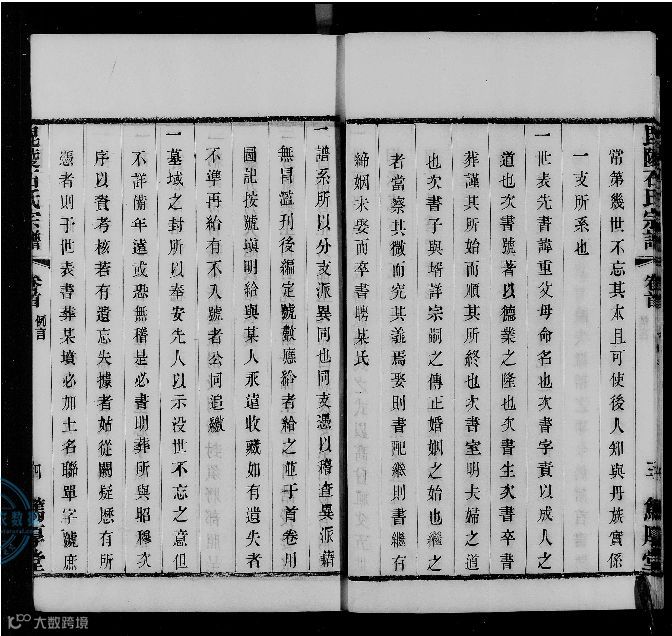 常第幾世不忘其本且可使後人知與丹族實係
一支所系也
一世表先書諱重父母命名也次書字責以成人之
道也次書號著以德業之隆也次書生次書卒書
葬謹其所始而順其所終也次書室明夫婦之道
也次書子與壻詳宗嗣之傳正婚姻之始也繼之
者當察其微而究其義焉娶則書配繼則書繼有
締姻未娶而卒書聘某氏
毘陵石氏宗譜
卷首
三
篤厚堂
一譜系所以分支派異同也同支憑以稽查異派藉
無冒濫刋後編定號數應給者給之並于首卷用
圖記按號塡明給與某人永遠收藏如有遺失者
不準再給有不入號者公同追繳
一墓域之封所以奉安先人以示沒世不忘之意但
不詳備年遠或恐無稽是必書明葬所與昭穆次
序以資考核若有遺忘失據者姑從闕疑歷有所
憑者則于世表書葬某墳必加土名聯單字號庶
毘陵石氏宗譜
卷首
例言
四
篤厚堂
大数跨境